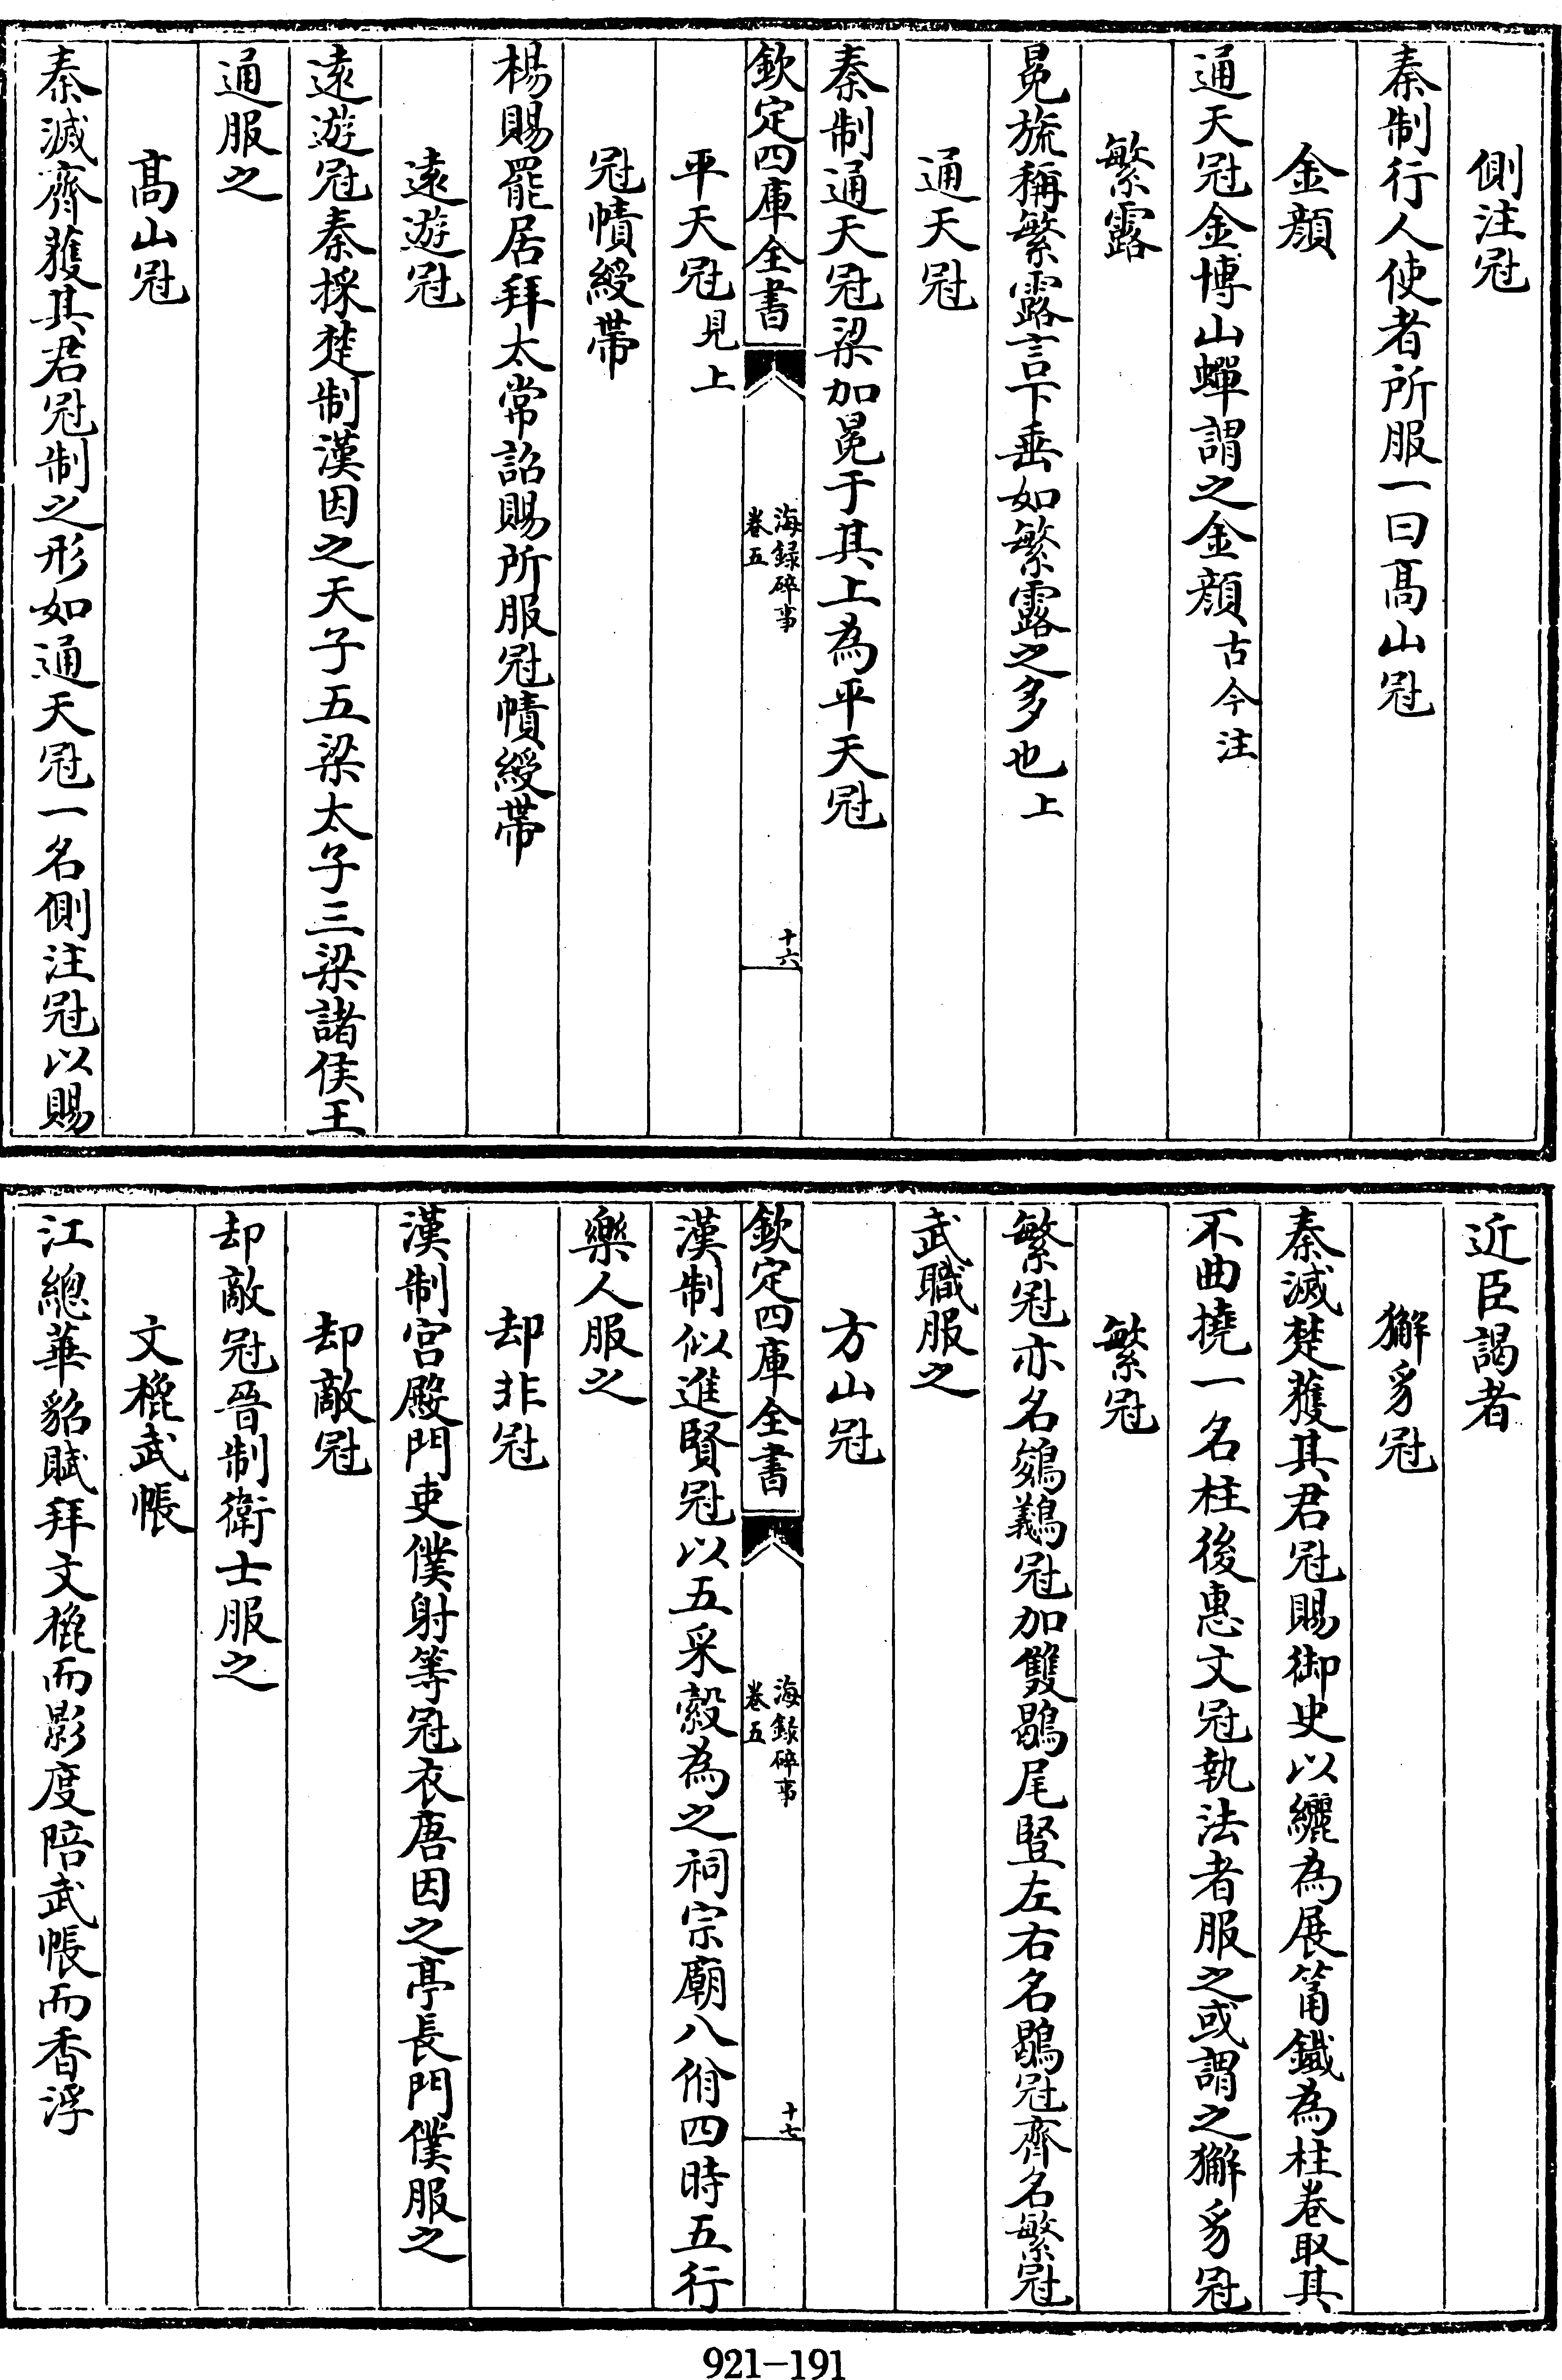 側注冠
秦制行人使者所服一曰髙山冠
金顔
通天冠金博山蟬謂之金顔古今注
繁露
冕旒稱繁露言下垂如繁露之多也上
通天冠
秦制通天冠梁加冕于其上為平天冠
欽定四庫全書
海録碎事
卷五
十六
平天冠見上
冠幘綬帶
楊賜罷居拜太常詔賜所服冠幘綬帶
逺遊冠
逺遊冠秦採楚制漢因之天子五梁太子三梁諸侯王
通服之
髙山冠
秦滅齊獲其君冠制之形如通天冠一名側注冠以賜
近臣謁者
獬豸冠
秦滅楚獲其君冠賜御史以纚為展筩鐡為柱卷取其
不曲撓一名柱後惠文冠執法者服之或謂之獬豸冠
繁冠
繁冠亦名鵕鸃冠加雙鶡尾豎左右名鶡冠齊名繁冠
武職服之
方山冠
欽定四庫全書
海録碎事
卷五
十七
漢制似進賢冠以五采縠為之祠宗廟八佾四時五行
樂人服之
却非冠
漢制宫殿門吏僕射等冠衣唐因之亭長門僕服之
却敵冠
却敵冠晉制衛士服之
文㮰武帳
江總華貂賦拜文㮰而影度陪武帳而香浮
921-191